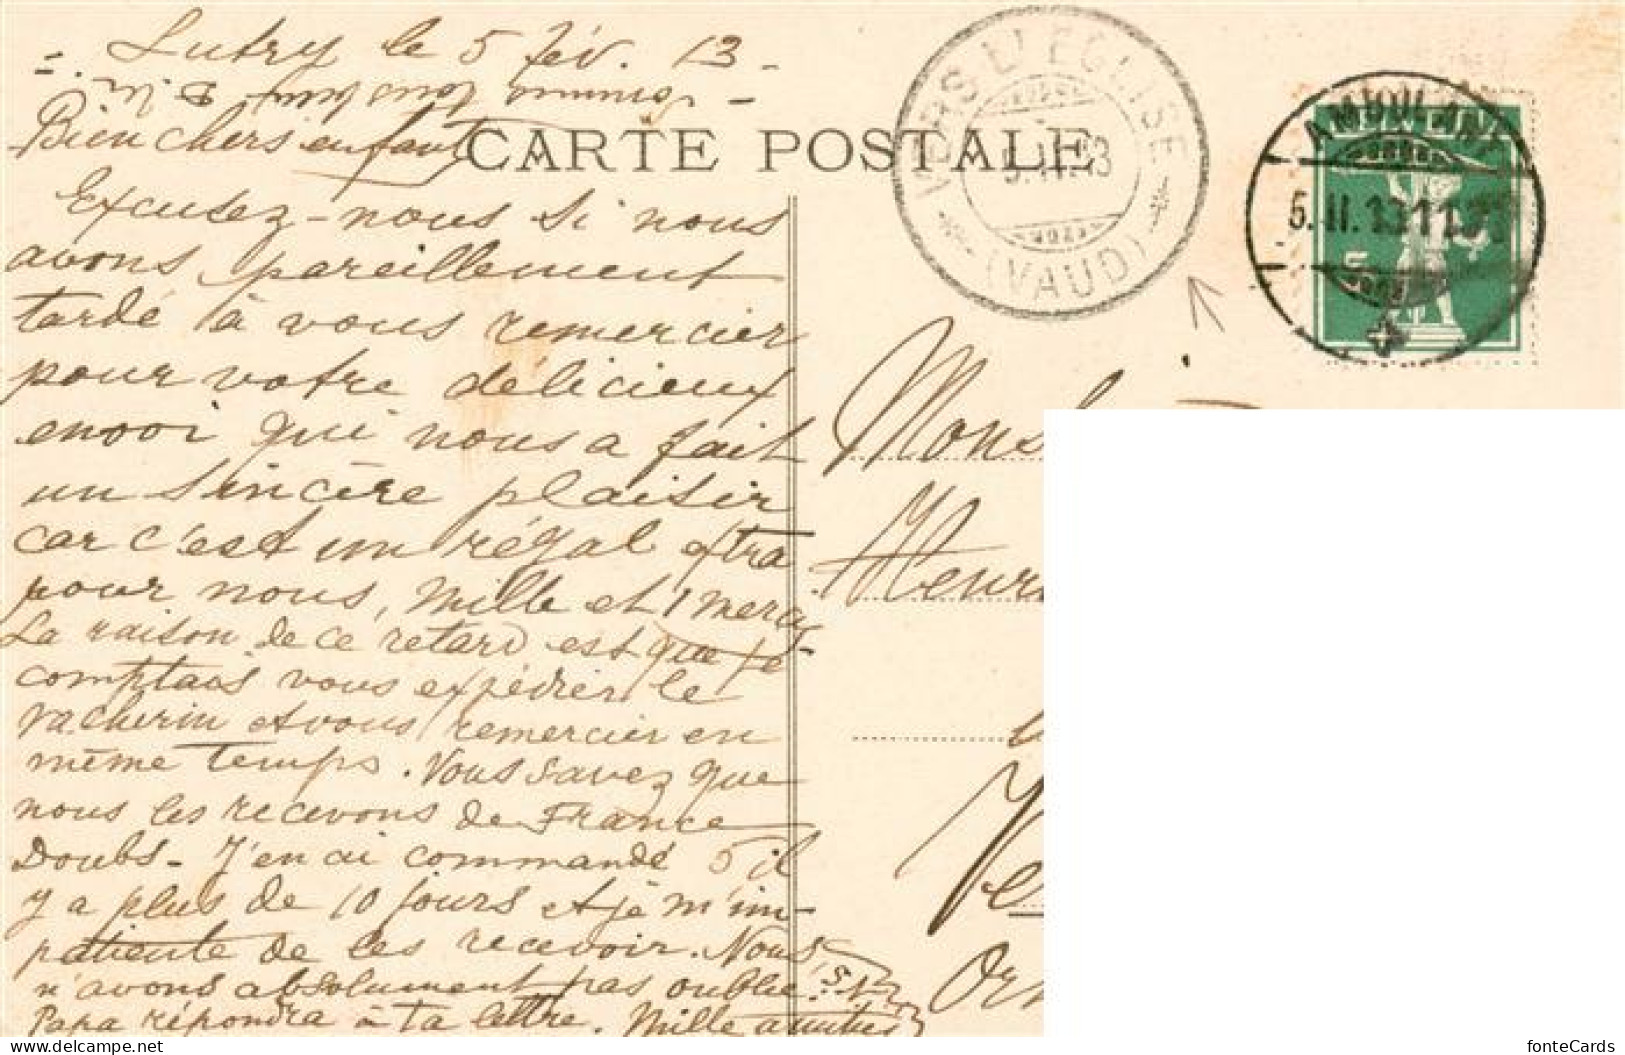 Lutry le 5 fév. 13
Bien chers enfants
CARTE POSTALE
Excusez-nous si nous
avons pareillement
tardé à vous remercier
pour votre délicieux
envoi qui nous a fait
un sincère plaisir
car c'est un régal extra
pour nous, Mille et 1 merci
La raison de ce retard est que je
comptais vous expédier le
vacherin et vous remercier en
même temps. Vous savez que
nous les recevons de France
Doubs - J'en ai commandé 5 il
y a plus de 10 jours et je m'im-
patiente de les recevoir. Nous
n'avons absolument pas oublié.
Papa répondra à ta lettre. Mille amitiés
VERS L'EGLISE
5.II.13
(VAUD)
AMBULANT
5.II.13 11
HELVETIA
5
Mons
Henri
Ve
Or
fonteCards
© fonteCards.com